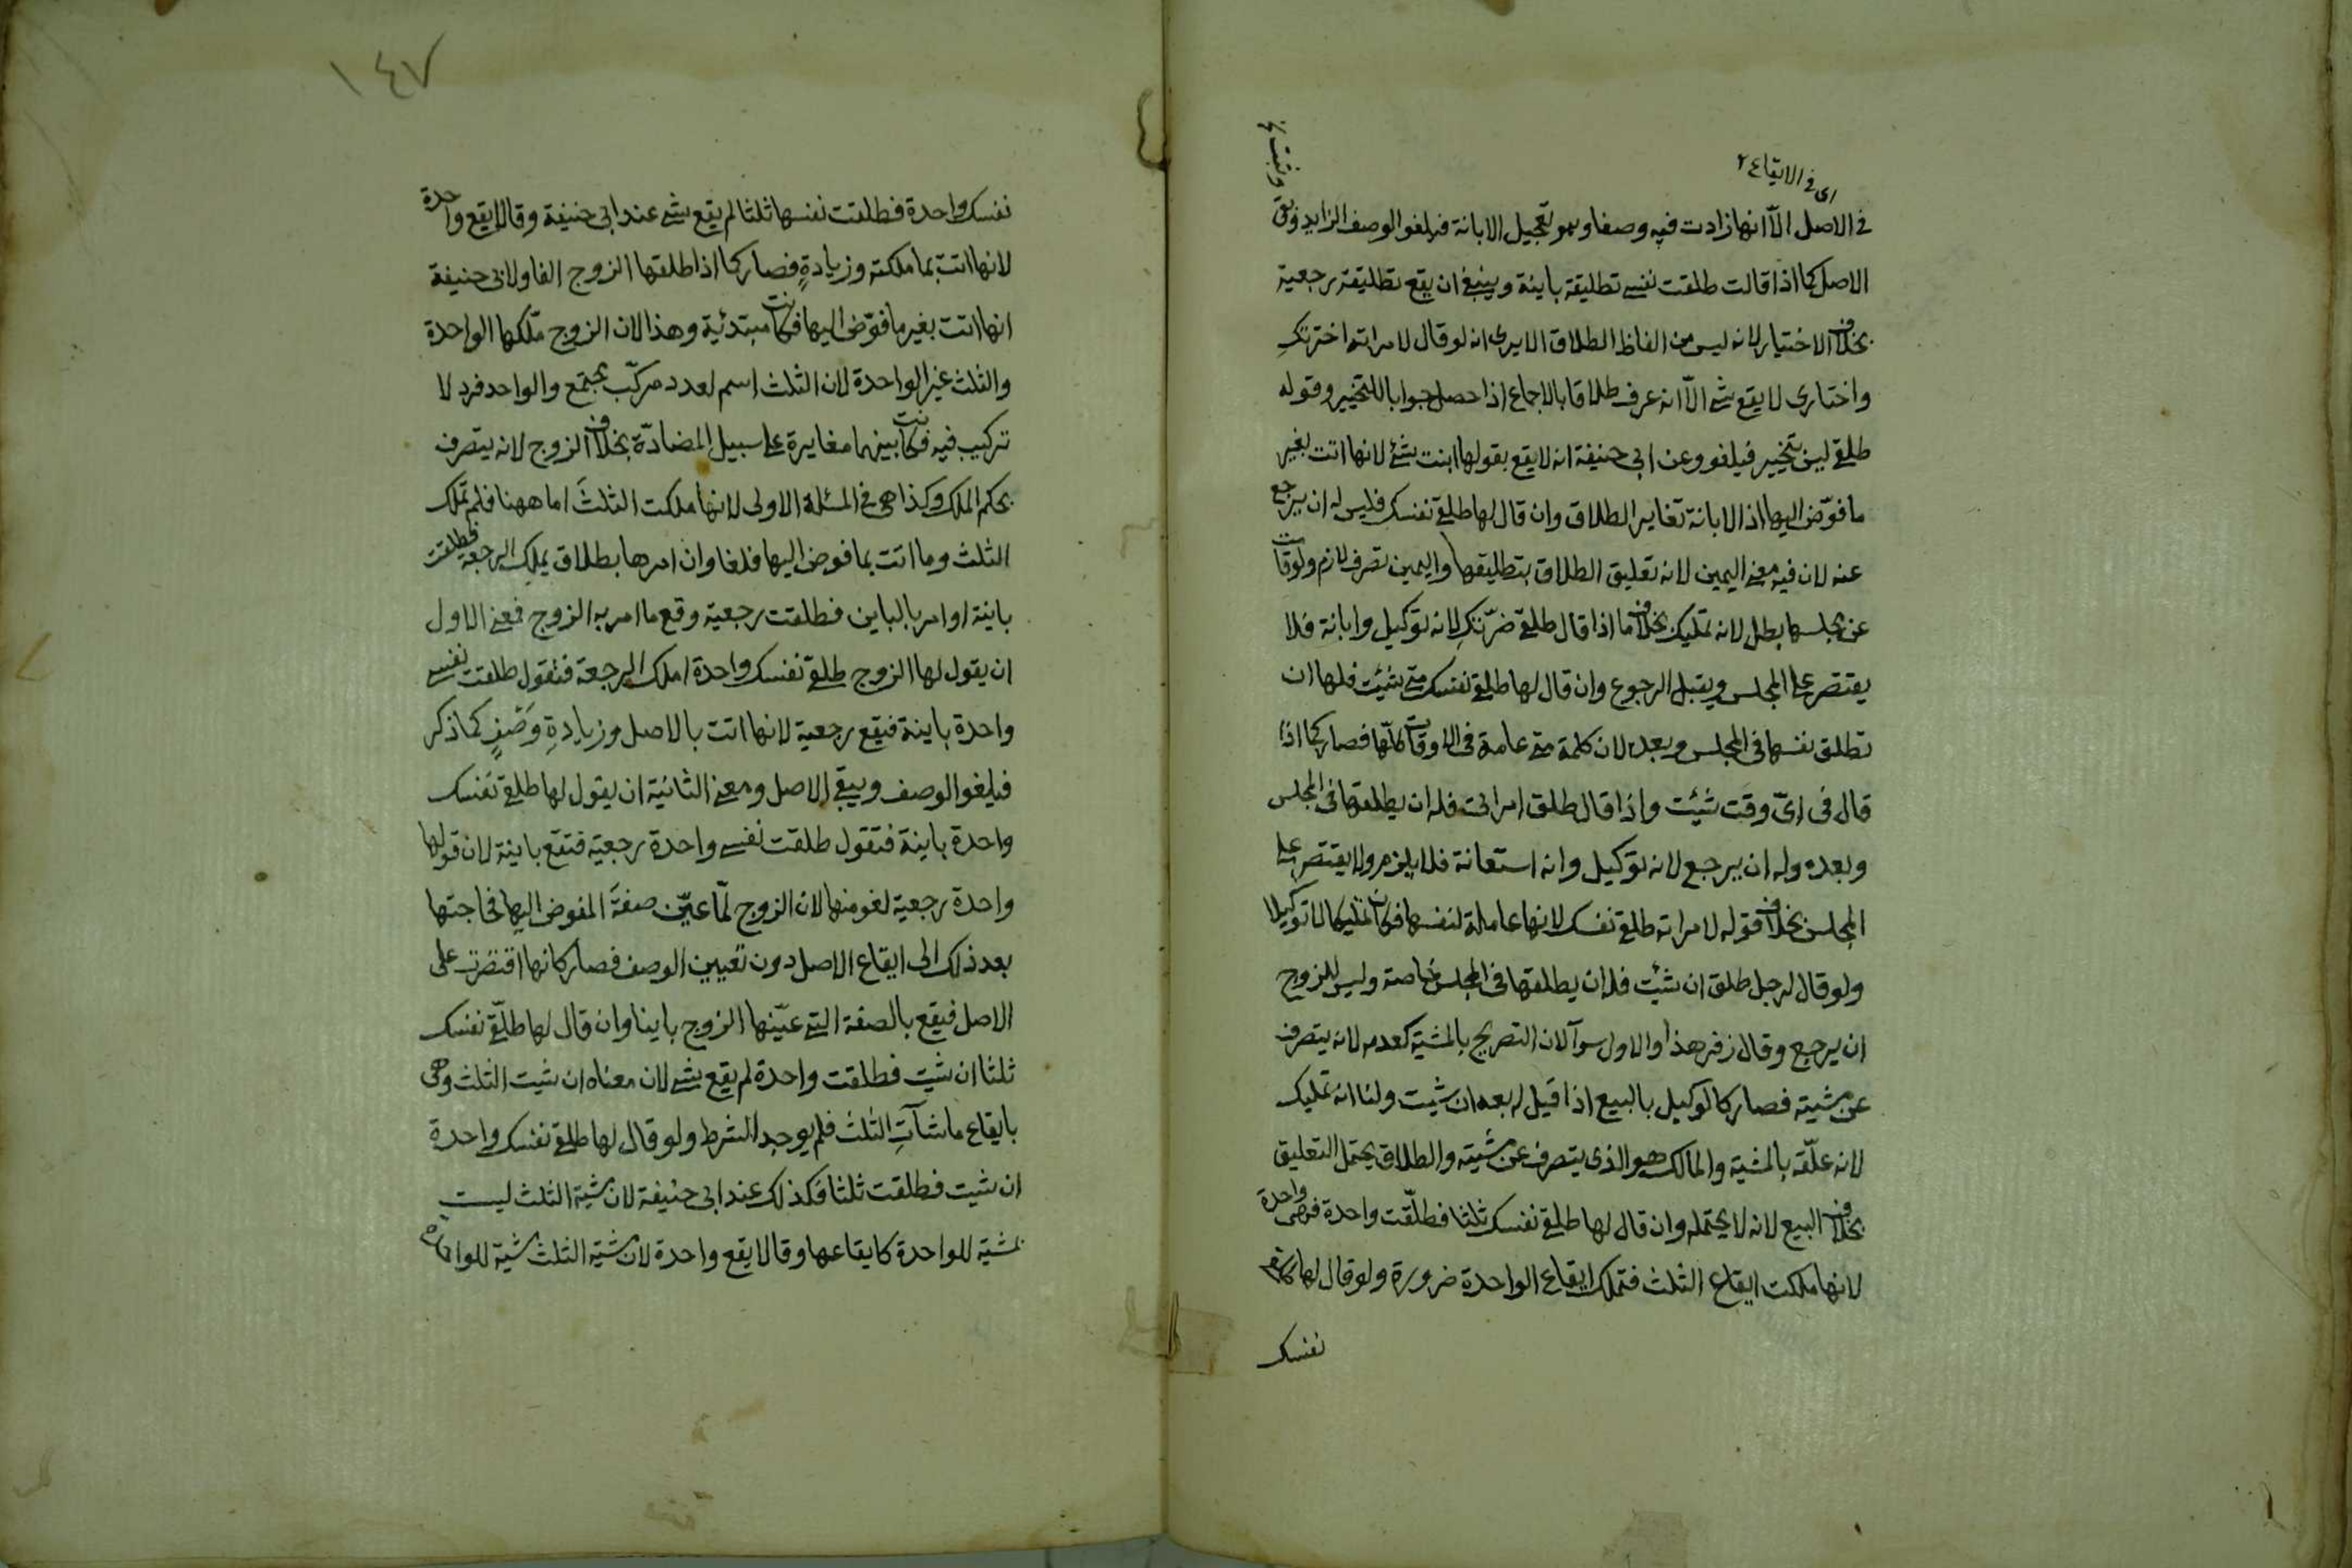 اى فى الايقاع ٢
فى الاصل الاّ انها زادت فيه وصفا وهو تعجيل الابانة فيلغو الوصف الزايد
الاصل كما اذا قالت طلقت نفسى تطليقة باينة وينبغى ان يقع تطليقة رجعية
بخلاف الاختيار لانه ليس من الفاظ الطلاق الا يرى انه لو قال لامراته اخترتكِ
واختارى لا يقع شئ الاّ انه عرف طلاقا بالاجماع اذا حصل جوابا للتخيير وقوله
طلقى ليس بتخيير فيلغو وعن ابى حنيفة انه لا يقع بقولها ابنت شئ لانها اتت بغير
ما فوّض اليها اذ الابانة تغاير الطلاق وان قال لها طلقى نفسكِ فليس له ان يرجع
عنه لان فيه معنى اليمين لانه تعليق الطلاق بتطليقها واليمين تصرف لازم ولو قامت
عن مجلسها بطل لانه تمليك بخلاف ما اذا قال طلقى ضرّتكِ لانه توكيل وابانة فلا
يقتصر على المجلس ويقبل الرجوع وان قال لها طلقى نفسك متى شئت فلها ان
تطلق نفسها فى المجلس وبعده لان كلمة متى عامة فى الاوقات كلّها فصار كما اذا
قال فى اىّ وقت شئت واذا قال طلق امراتى فله ان يطلقها فى المجلس
وبعده وله ان يرجع لانه توكيل وانه استعانة فلا يلزم ولا يقتصر على
المجلس بخلاف قوله لامراته طلقى نفسك لانها عاملة لنفسها فكان تمليكا لا توكيلا
ولو قال لرجل طلق ان شئت فله ان يطلقها فى المجلس خاصة وليس للزوج
ان يرجع وقال زفر هذا والاول سوآ لان التصريح بالمشية كعدمه لانه يتصرف
عن مشيته فصار كالوكيل بالبيع اذا قيل له بعه ان شئت ولنا انه تمليك
لانه علّقه بالمشية والمالك هو الذى يتصرف عن مشيته والطلاق يحتمل التعليق
بخلاف البيع لانه لا يحتمله وان قال لها طلقى نفسك ثلثا فطلّقت واحدة فهى واحدة
لانها ملكت ايقاع الثلث فتملك ايقاع الواحدة ضرورة ولو قال لها
نفسك
١٤٧
نفسك واحدة فطلقت نفسها ثلثا لم يقع شئ عند ابى حنيفة وقالا يقع واحدة
لانها اتت بما ملكته وزيادةٍ فصار كما اذا طلقها الزوج الفا ولابى حنيفة
انها اتت بغير ما فوّض اليها فكانت مبتدئية وهذا لان الزوج ملّكها الواحدة
والثلث غير الواحدة لان الثلث اسم لعدد مركّب مجتمع والواحد فرد لا
تركيب فيه فكانت بينهما مغايرة على سبيل المضادّة بخلاف الزوج لانه يتصرف
بحكم الملك وكذا هى فى المسئلة الاولى لانها ملكت الثلثَ اما ههنا فلم تملك
الثلث وما اتت بما فوض اليها فلغا وان امرها بطلاق يملك الرجعة فطلقت
باينة او امر بالباين فطلقت رجعية وقع ما امر به الزوج فمعنى الاول
ان يقول لها الزوج طلقى نفسك واحدة املك الرجعة فتقول طلقت نفسى
واحدة باينة فتقع رجعية لانها اتت بالاصل وزيادةِ وَصْفٍ كما ذكر
فيلغو الوصف ويبقى الاصل ومعنى الثانية ان يقول لها طلقى نفسك
واحدة باينة فتقول طلقت نفسى واحدة رجعية فتقع باينة لان قولها
واحدة رجعية لغو منها لان الزوج لمّا عيّن صفةَ المفوض اليها فحاجتها
بعد ذلك الى ايقاع الاصل دون تعيين الوصف فصار كانها اقتصرت على
الاصل فيقع بالصفة التى عيّنها الزوج باينا وان قال لها طلّقى نفسك
ثلثا ان شئت فطلقت واحدة لم يقع شئ لان معناه ان شئت الثلث وهى
بايقاع ما شآتِ الثلث فلم يوجد الشرط ولو قال لها طلقى نفسك واحدة
ان شئت فطلقت ثلثا فكذلك عند ابى حنيفة لان مشية الثلث ليست
بمشية للواحدة كايقاعها وقالا يقع واحدة لان مشية الثلث مشية للواحدة